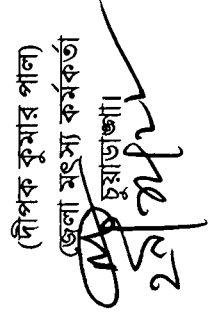 (দীপক কুমার পাল)
জেলা মৎস্য কর্মকর্তা
চুয়াডাঙ্গা।